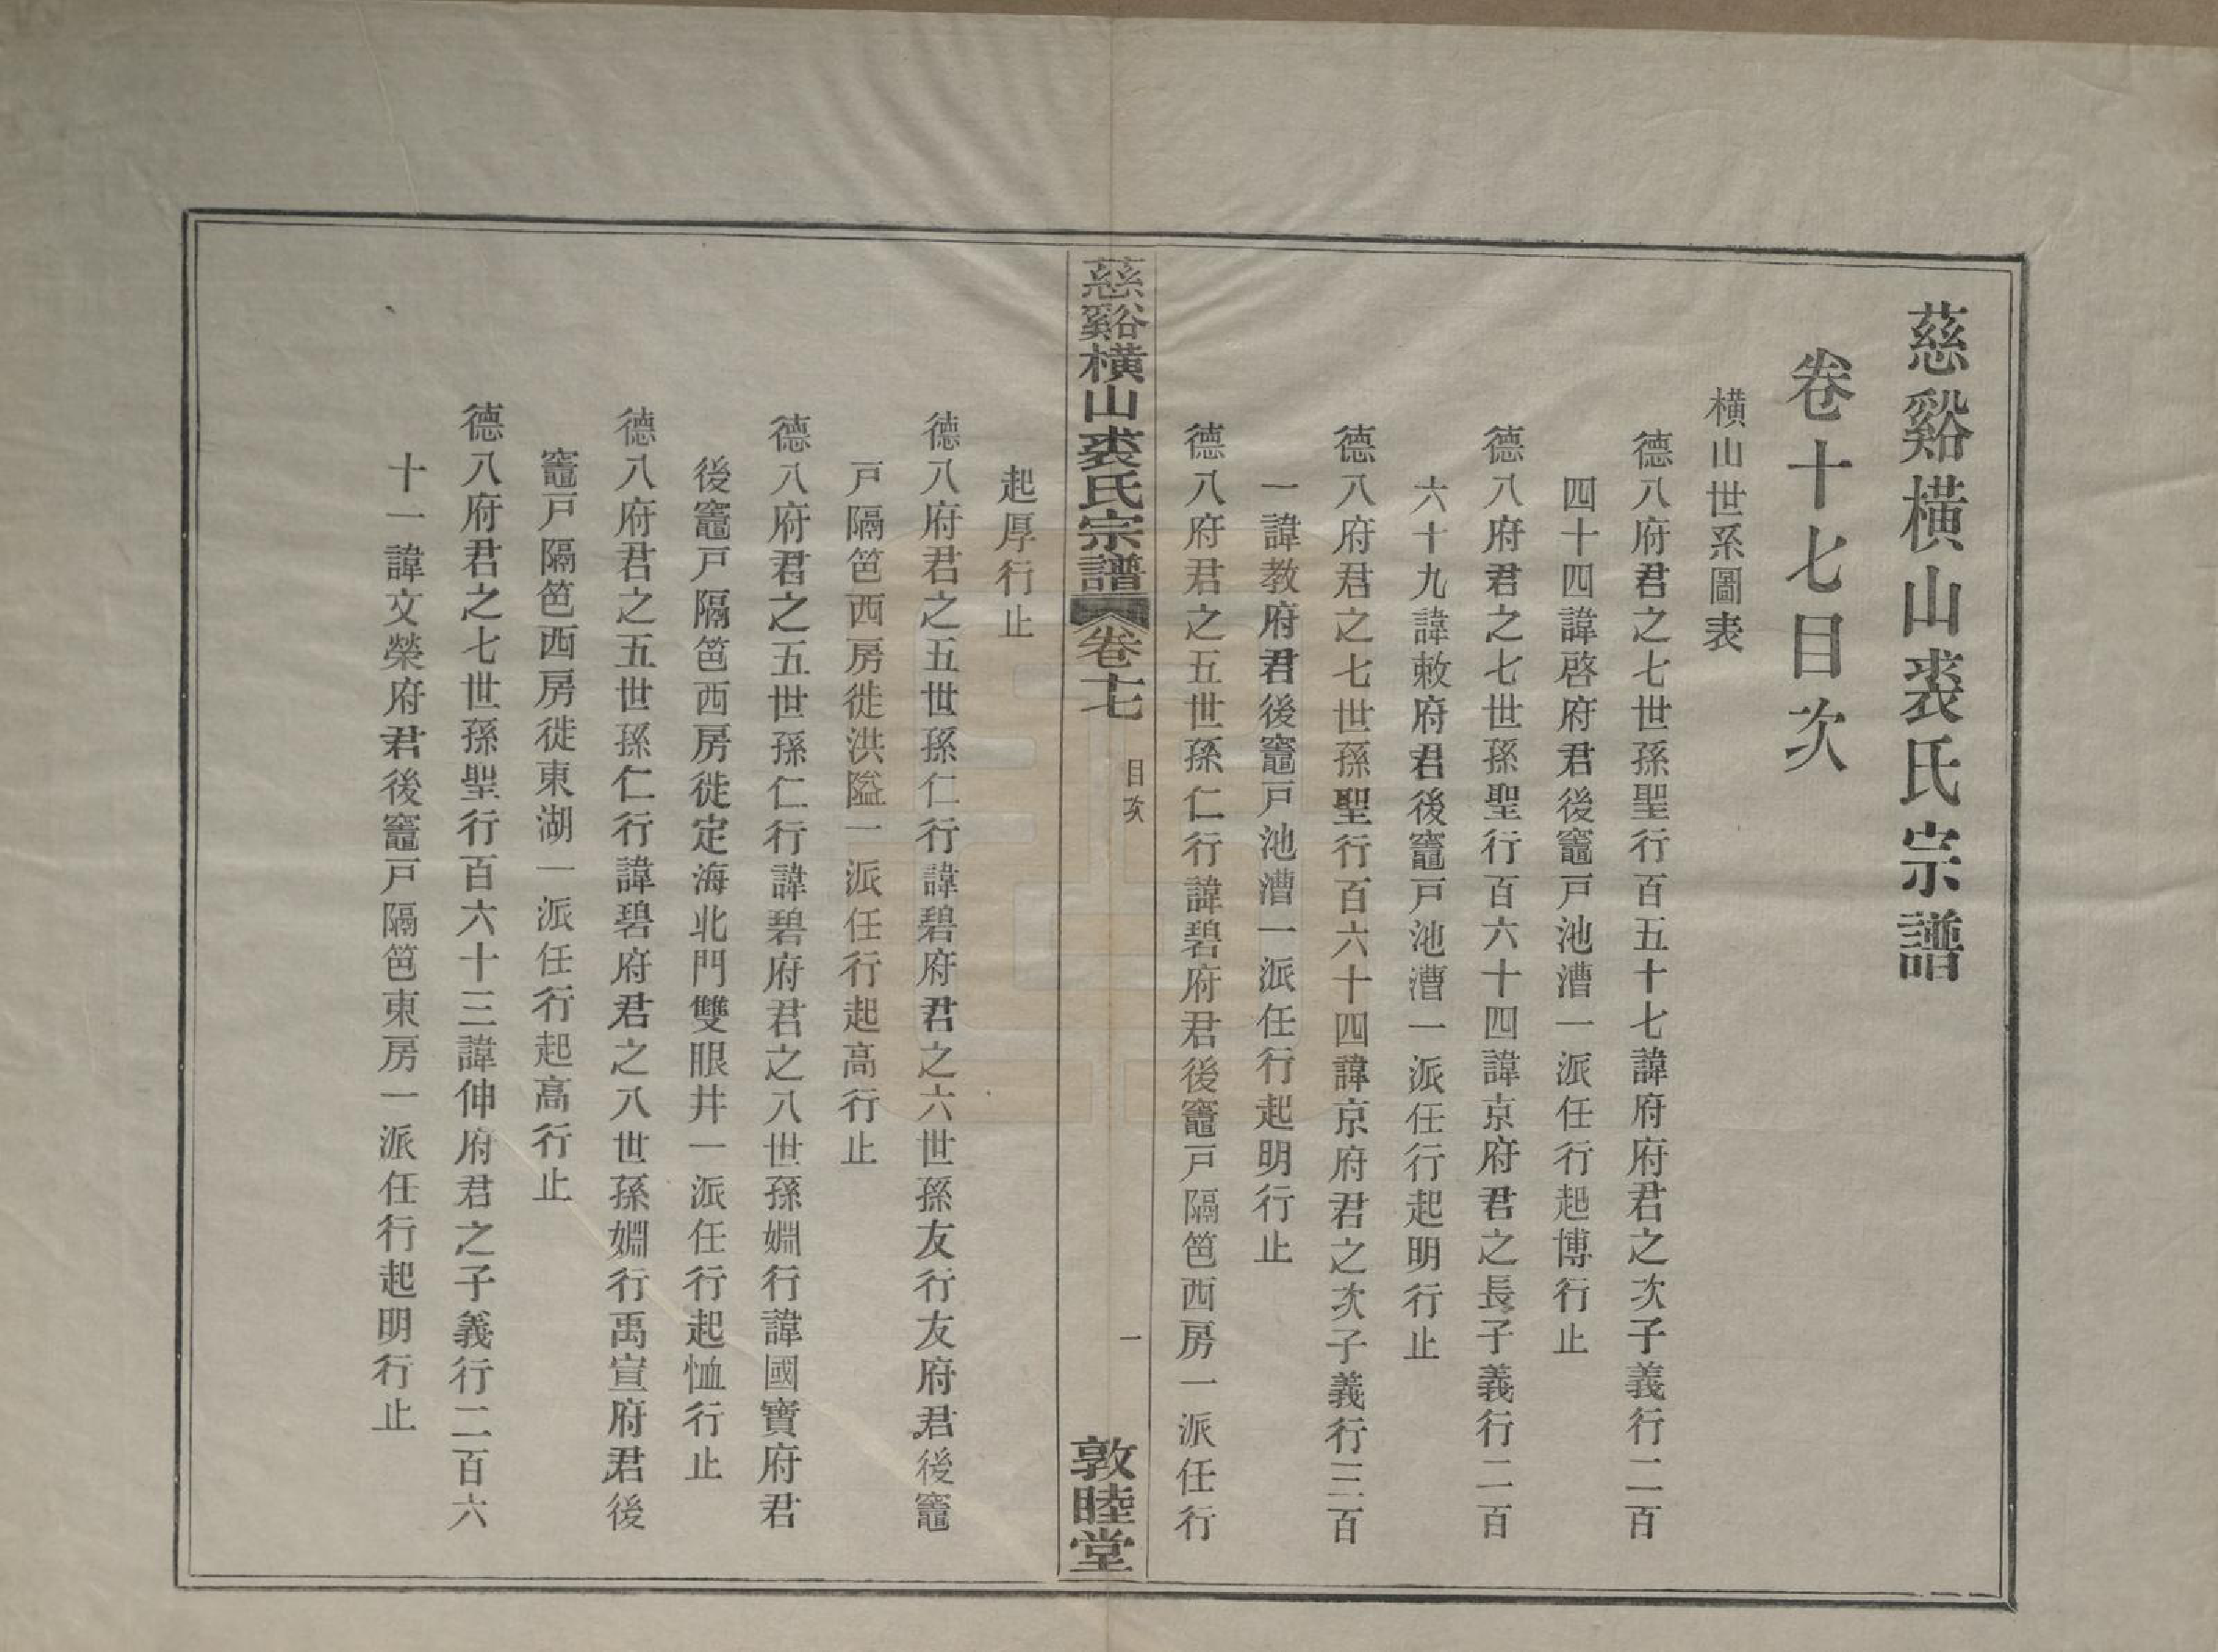 慈谿橫山裘氏宗譜
卷十七目次
橫山世系圖表
德八府君之七世孫聖行百五十七諱府府君之次子義行二百
四十四諱啓府君後竈戸池漕一派任行起博行止
德八府君之七世孫聖行百六十四諱京府君之長子義行二百
六十九諱敕府君後竈戸池漕一派任行起明行止
德八府君之七世孫聖行百六十四諱京府君之次子義行三百
一諱教府君後竈戸池漕一派任行起明行止
德八府君之五世孫仁行諱碧府君後竈戸隔笆西房一派任行
慈谿橫山裘氏宗譜 卷十七 目次 一 敦睦堂
起厚行止
德八府君之五世孫仁行諱碧府君之六世孫友行友府君後竈
戸隔笆西房徙洪隘一派任行起高行止
德八府君之五世孫仁行諱碧府君之八世孫婣行諱國寶府君
後竈戸隔笆西房徙定海北門雙眼井一派任行起恤行止
德八府君之五世孫仁行諱碧府君之八世孫婣行禹宣府君後
竈戸隔笆西房徙東湖一派任行起高行止
德八府君之七世孫聖行百六十三諱伸府君之子義行二百六
十一諱文榮府君後竈戸隔笆東房一派任行起明行止